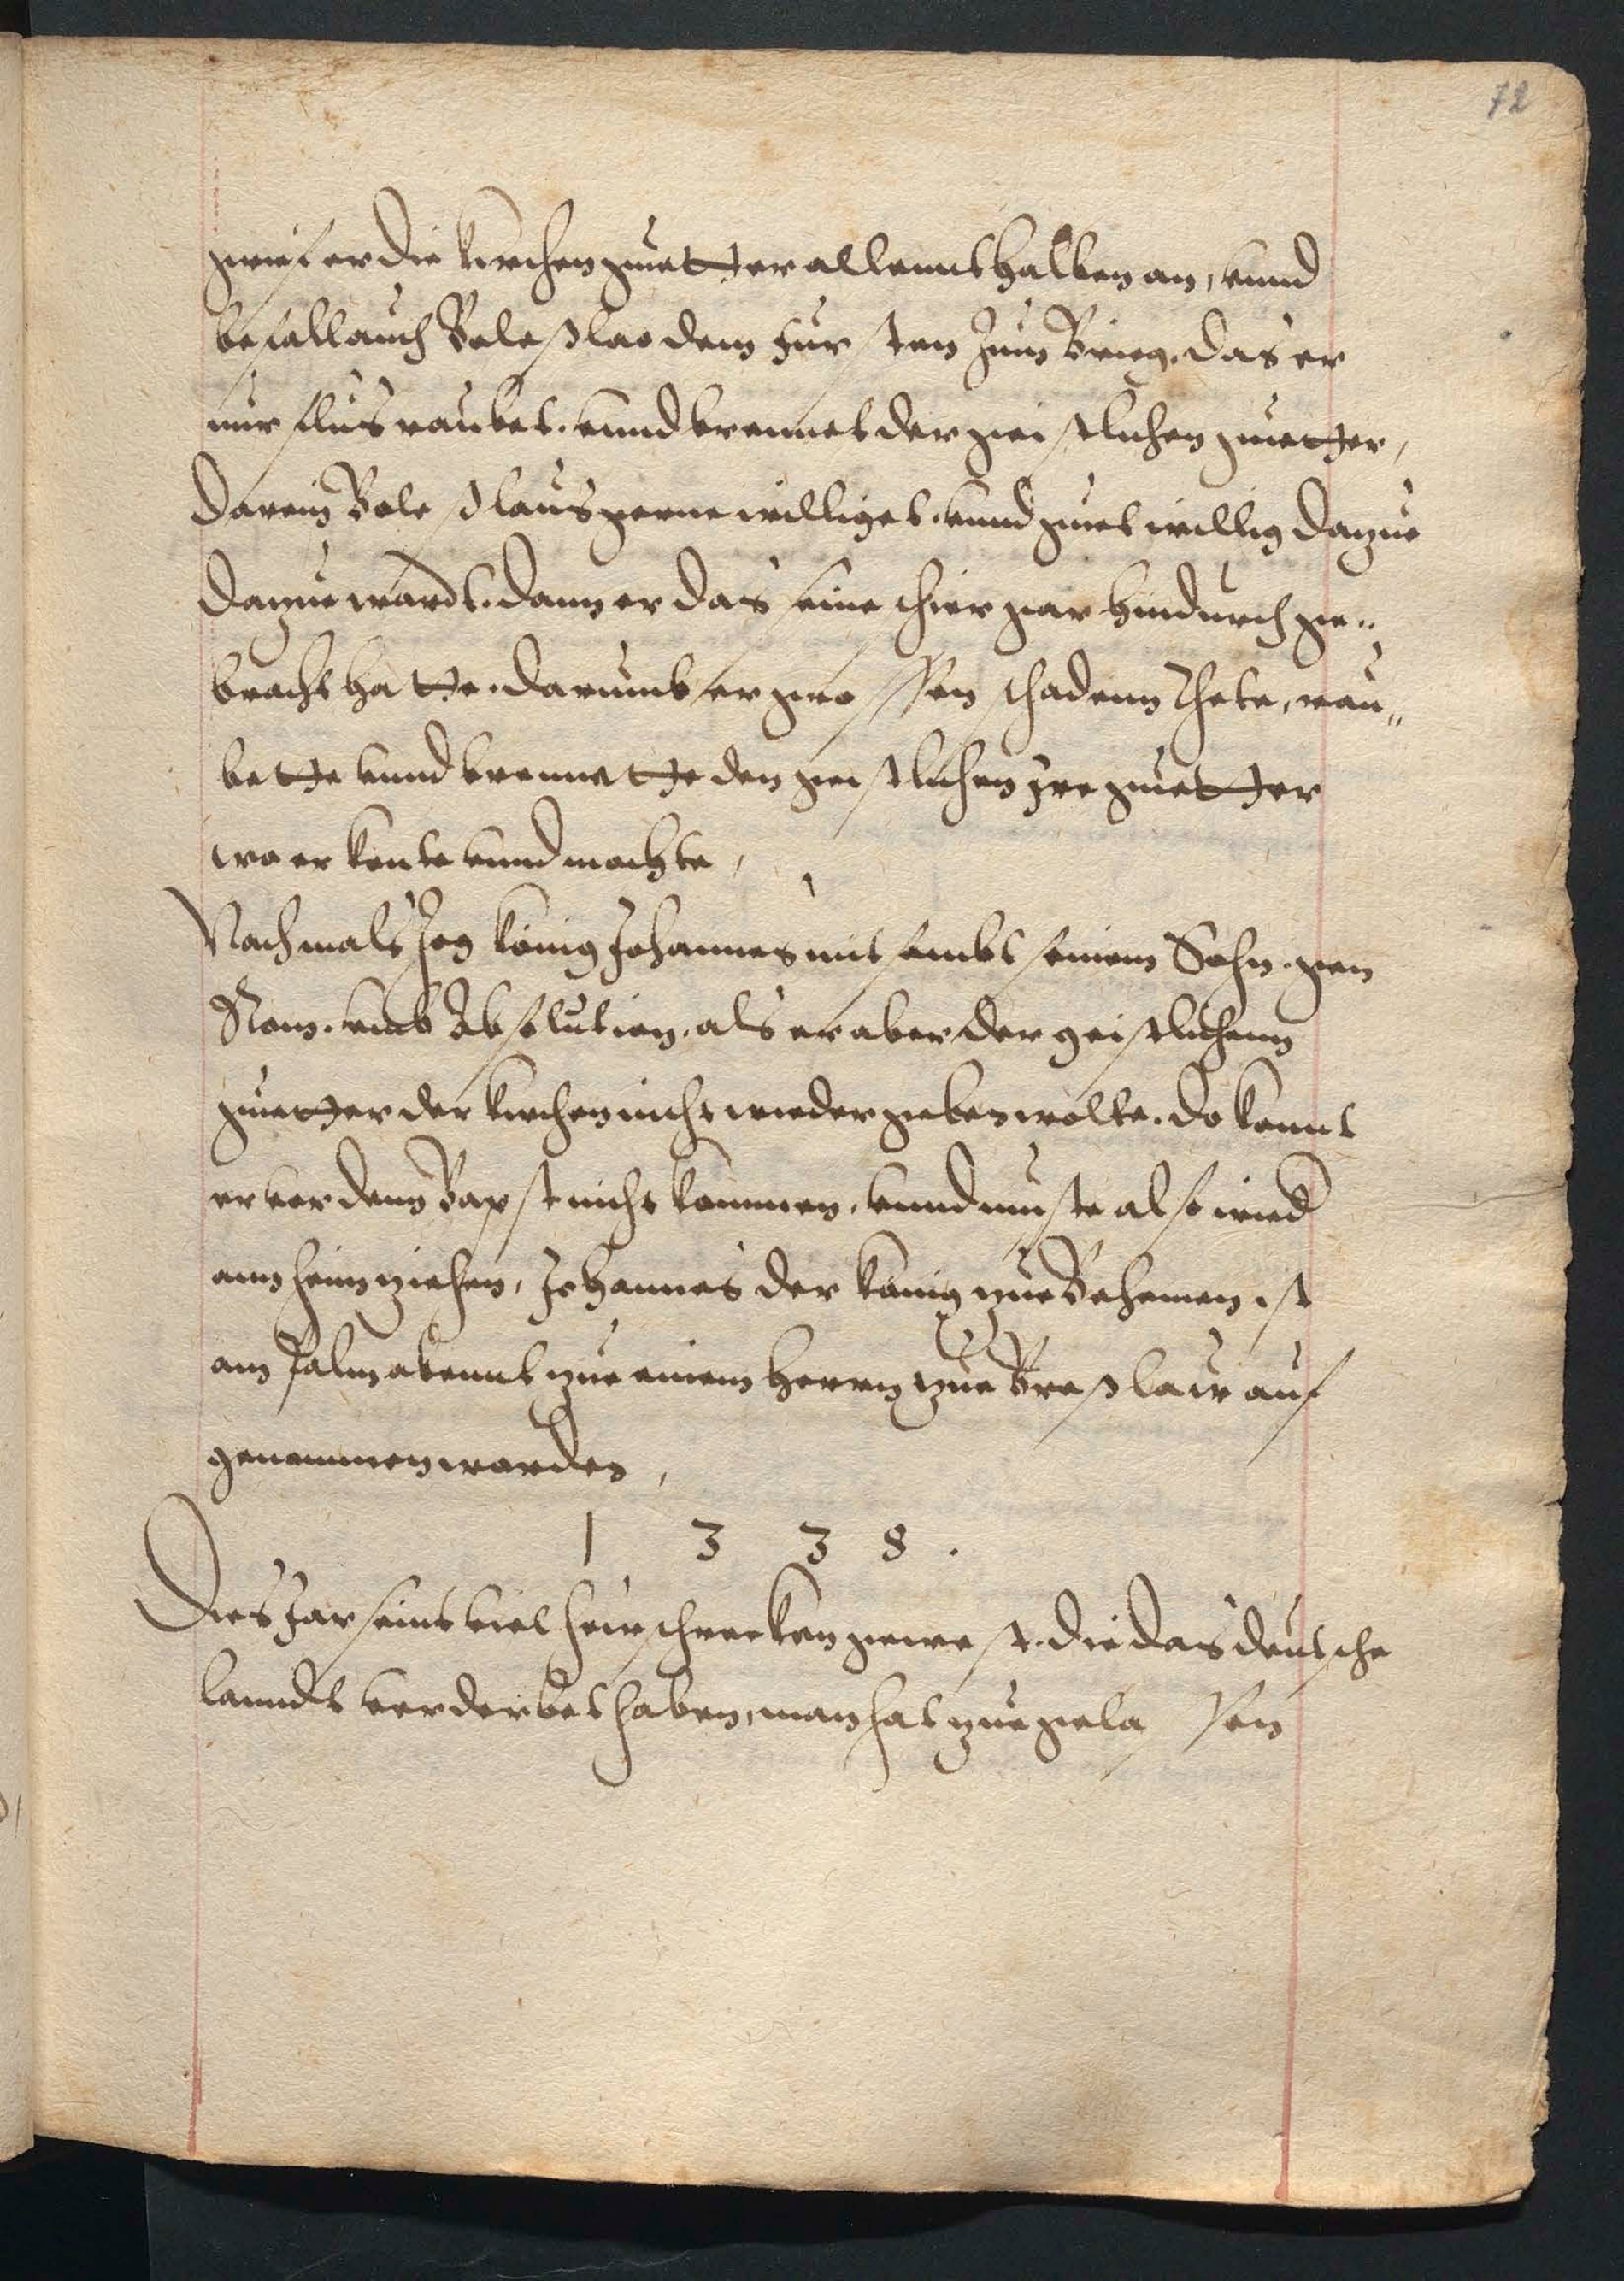 72
greif er die kirchen guetter allennthalben an, vnnd
befall auch Boleßlao dem Fursten Zum Brieg. das er
nur flüs raubet. vnnd brennet der geistlichen guetter,
darein Boleßlaus gerne williget. vnnd guet willig dazue
dazue wardt. dann er das seine schier gar hindurch ge„
bracht hatte. darumb er grossen schadenn thete, rau„
bette vnnd brennette den geistlichen jre guetter
wo er konte vnnd mochte,
Nachmals zog könig Johannes mit sambt seinem Sohn. gen
Rom. vmb Absolution. als er aber der geistlichenn
guetter der kirchen nicht wieder geben wolte. do konnt
er vor dem Bapst nicht kommen. vnnd muste also wied
ann heim ziehen, Johannes der könig zue Behemen ist
am palm abennt zue einem Herrn zue Breßlaw auf
genommen worden,
1 3 3 8 .
Dies Jar seint viel hewschrecken gewest. die das deutsche
lanndt verderbet haben, man hat zue gelassen